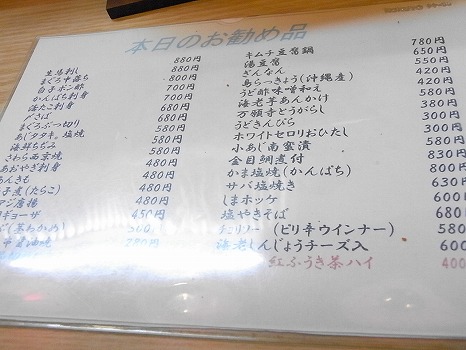 本日のお勧め品
生馬刺し 880円
まぐろ中落ち 880円
白子ポン酢 800円
かんぱち刺身 700円
活たこ刺身 680円
〆さば 680円
まぐろぶつ切り 580円
あじタタキ、塩焼 580円
海鮮ちぢみ 580円
さわら西京焼 480円
あおやぎ刺身 480円
あんきも 480円
子煮(たらこ) 480円
アジ唐揚 480円
ギョーザ 450円
キムチ豆腐鍋 780円
湯豆腐 650円
ぎんなん 550円
島らっきょう(沖縄産) 420円
うど酢味噌和え 420円
海老芋あんかけ 580円
万願寺とうがらし 380円
うどきんぴら 300円
ホワイトセロリおひたし 300円
小あじ南蛮漬 580円
金目鯛煮付 830円
かま塩焼(かんぱち) 800円
サバ塩焼き 630
しまホッケ 600
塩やきそば 680
チョリソー(ピリ辛ウインナー) 580
海老しんじょうチーズ入 600
紅ふうき茶ハイ 400